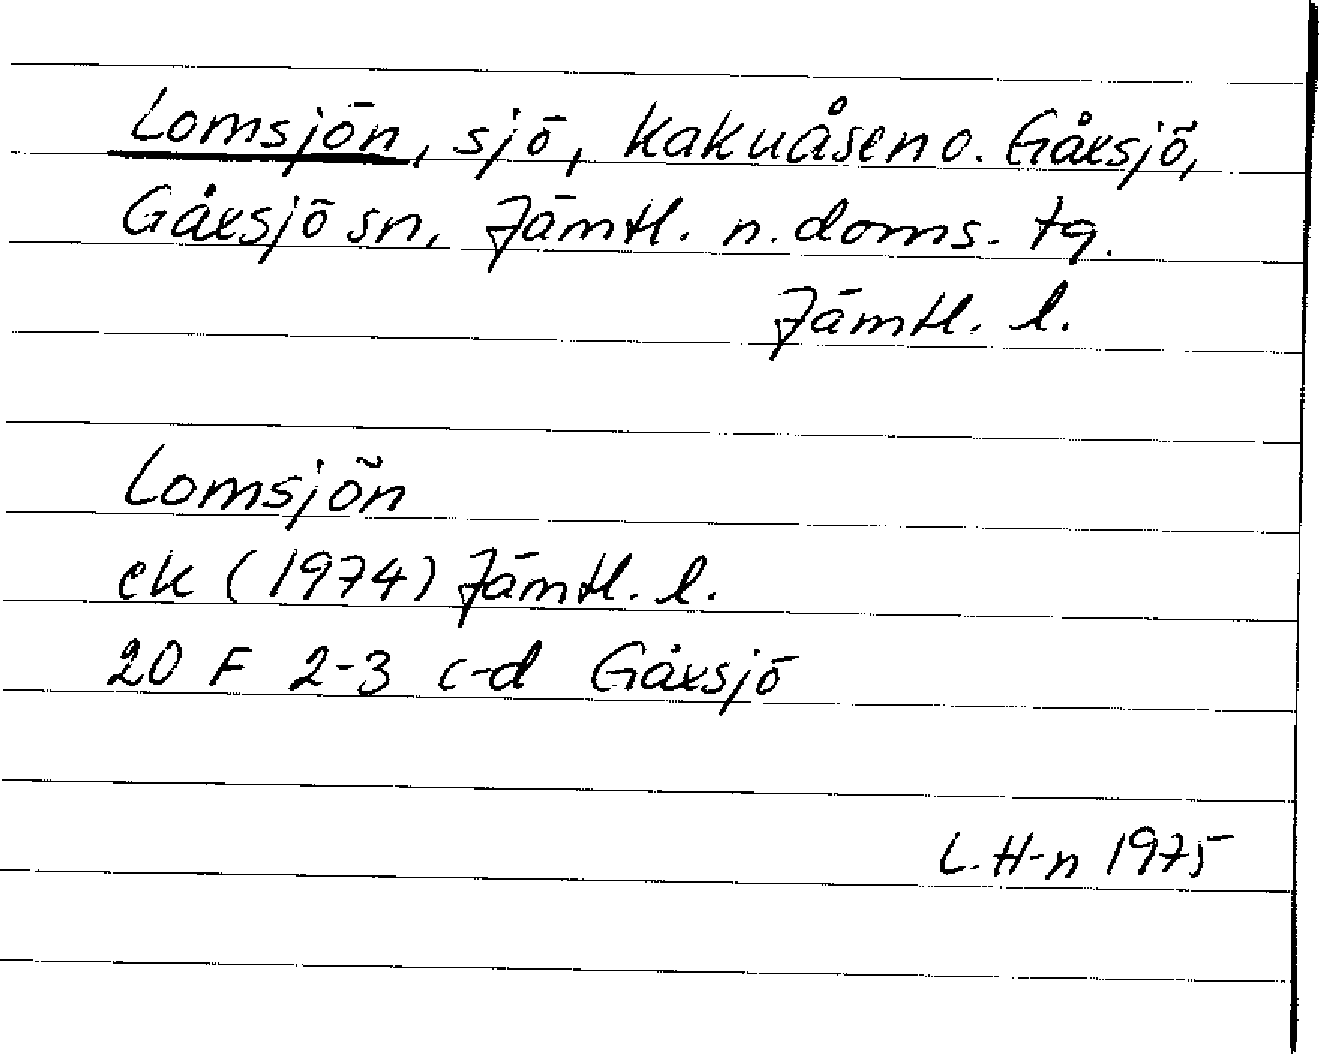 Lomsjön, sjö, Kakuåsen o. Gåxsjö,
Gåxsjö sn, Jämtl. n. doms. tg.
Jämtl. l.
Lomsjön
ek (1974) Jämtl. l.
20 F 2-3 c-d Gåxsjö
L. H-n 1975